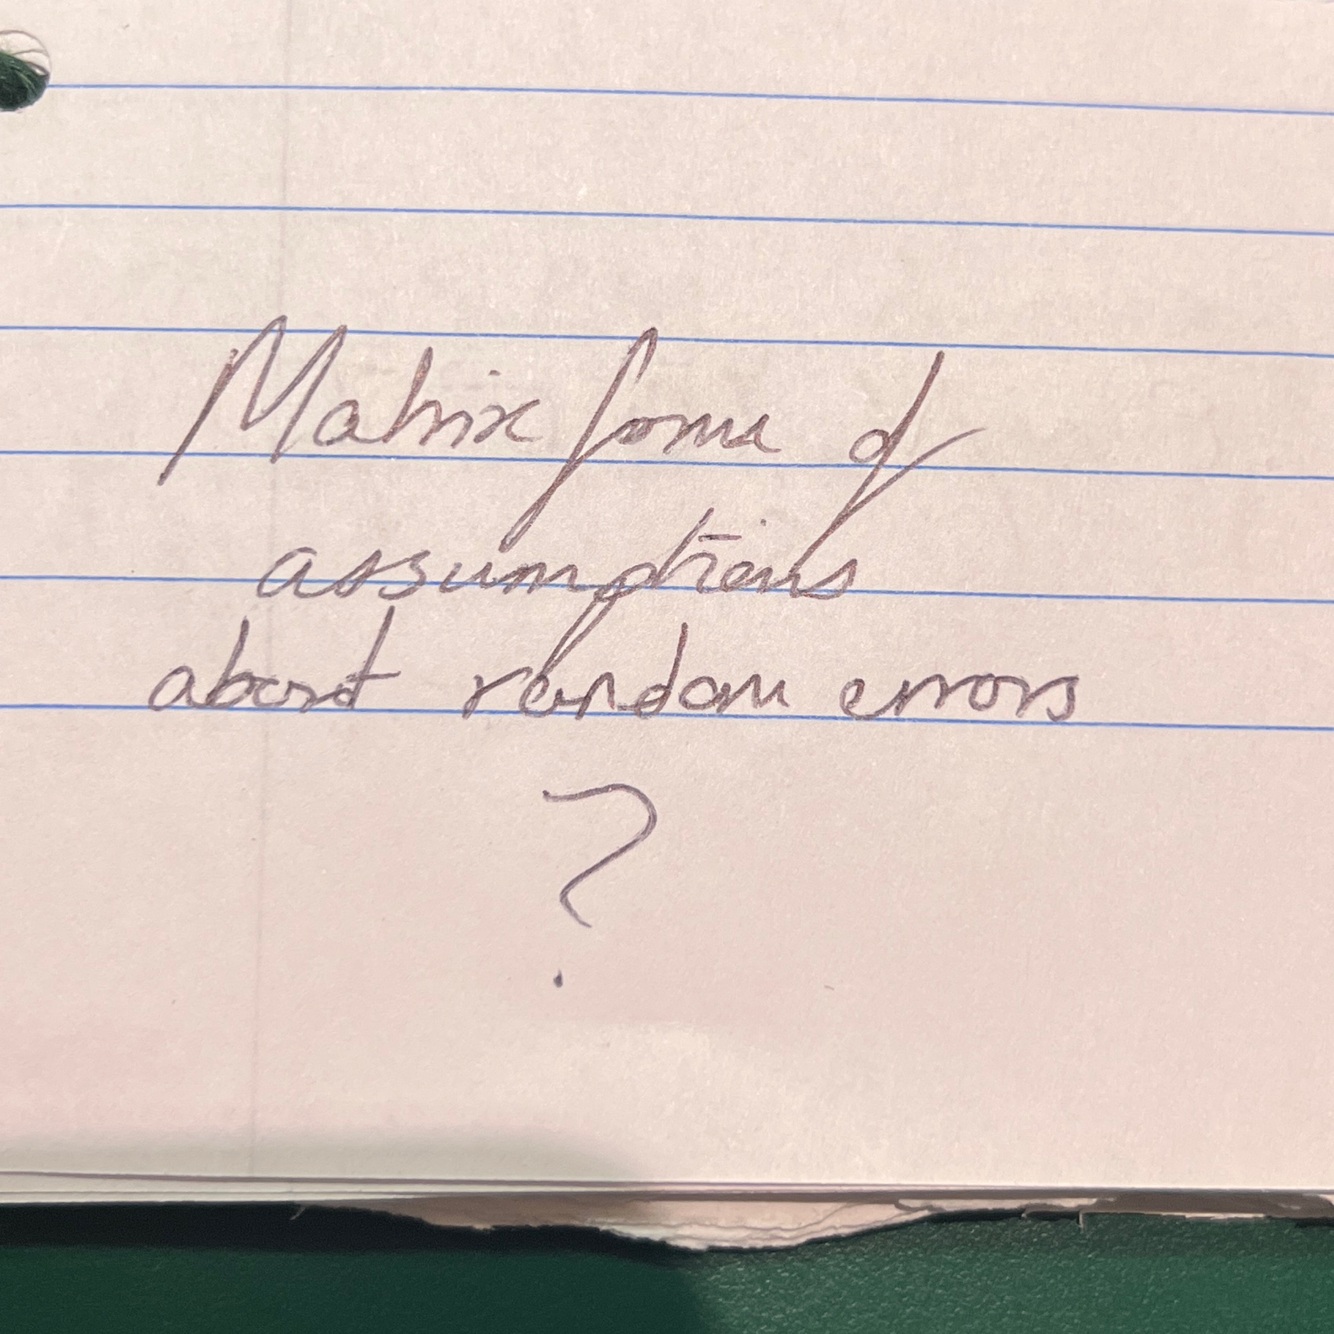 Matrix form of
assumptions
about random errors
?